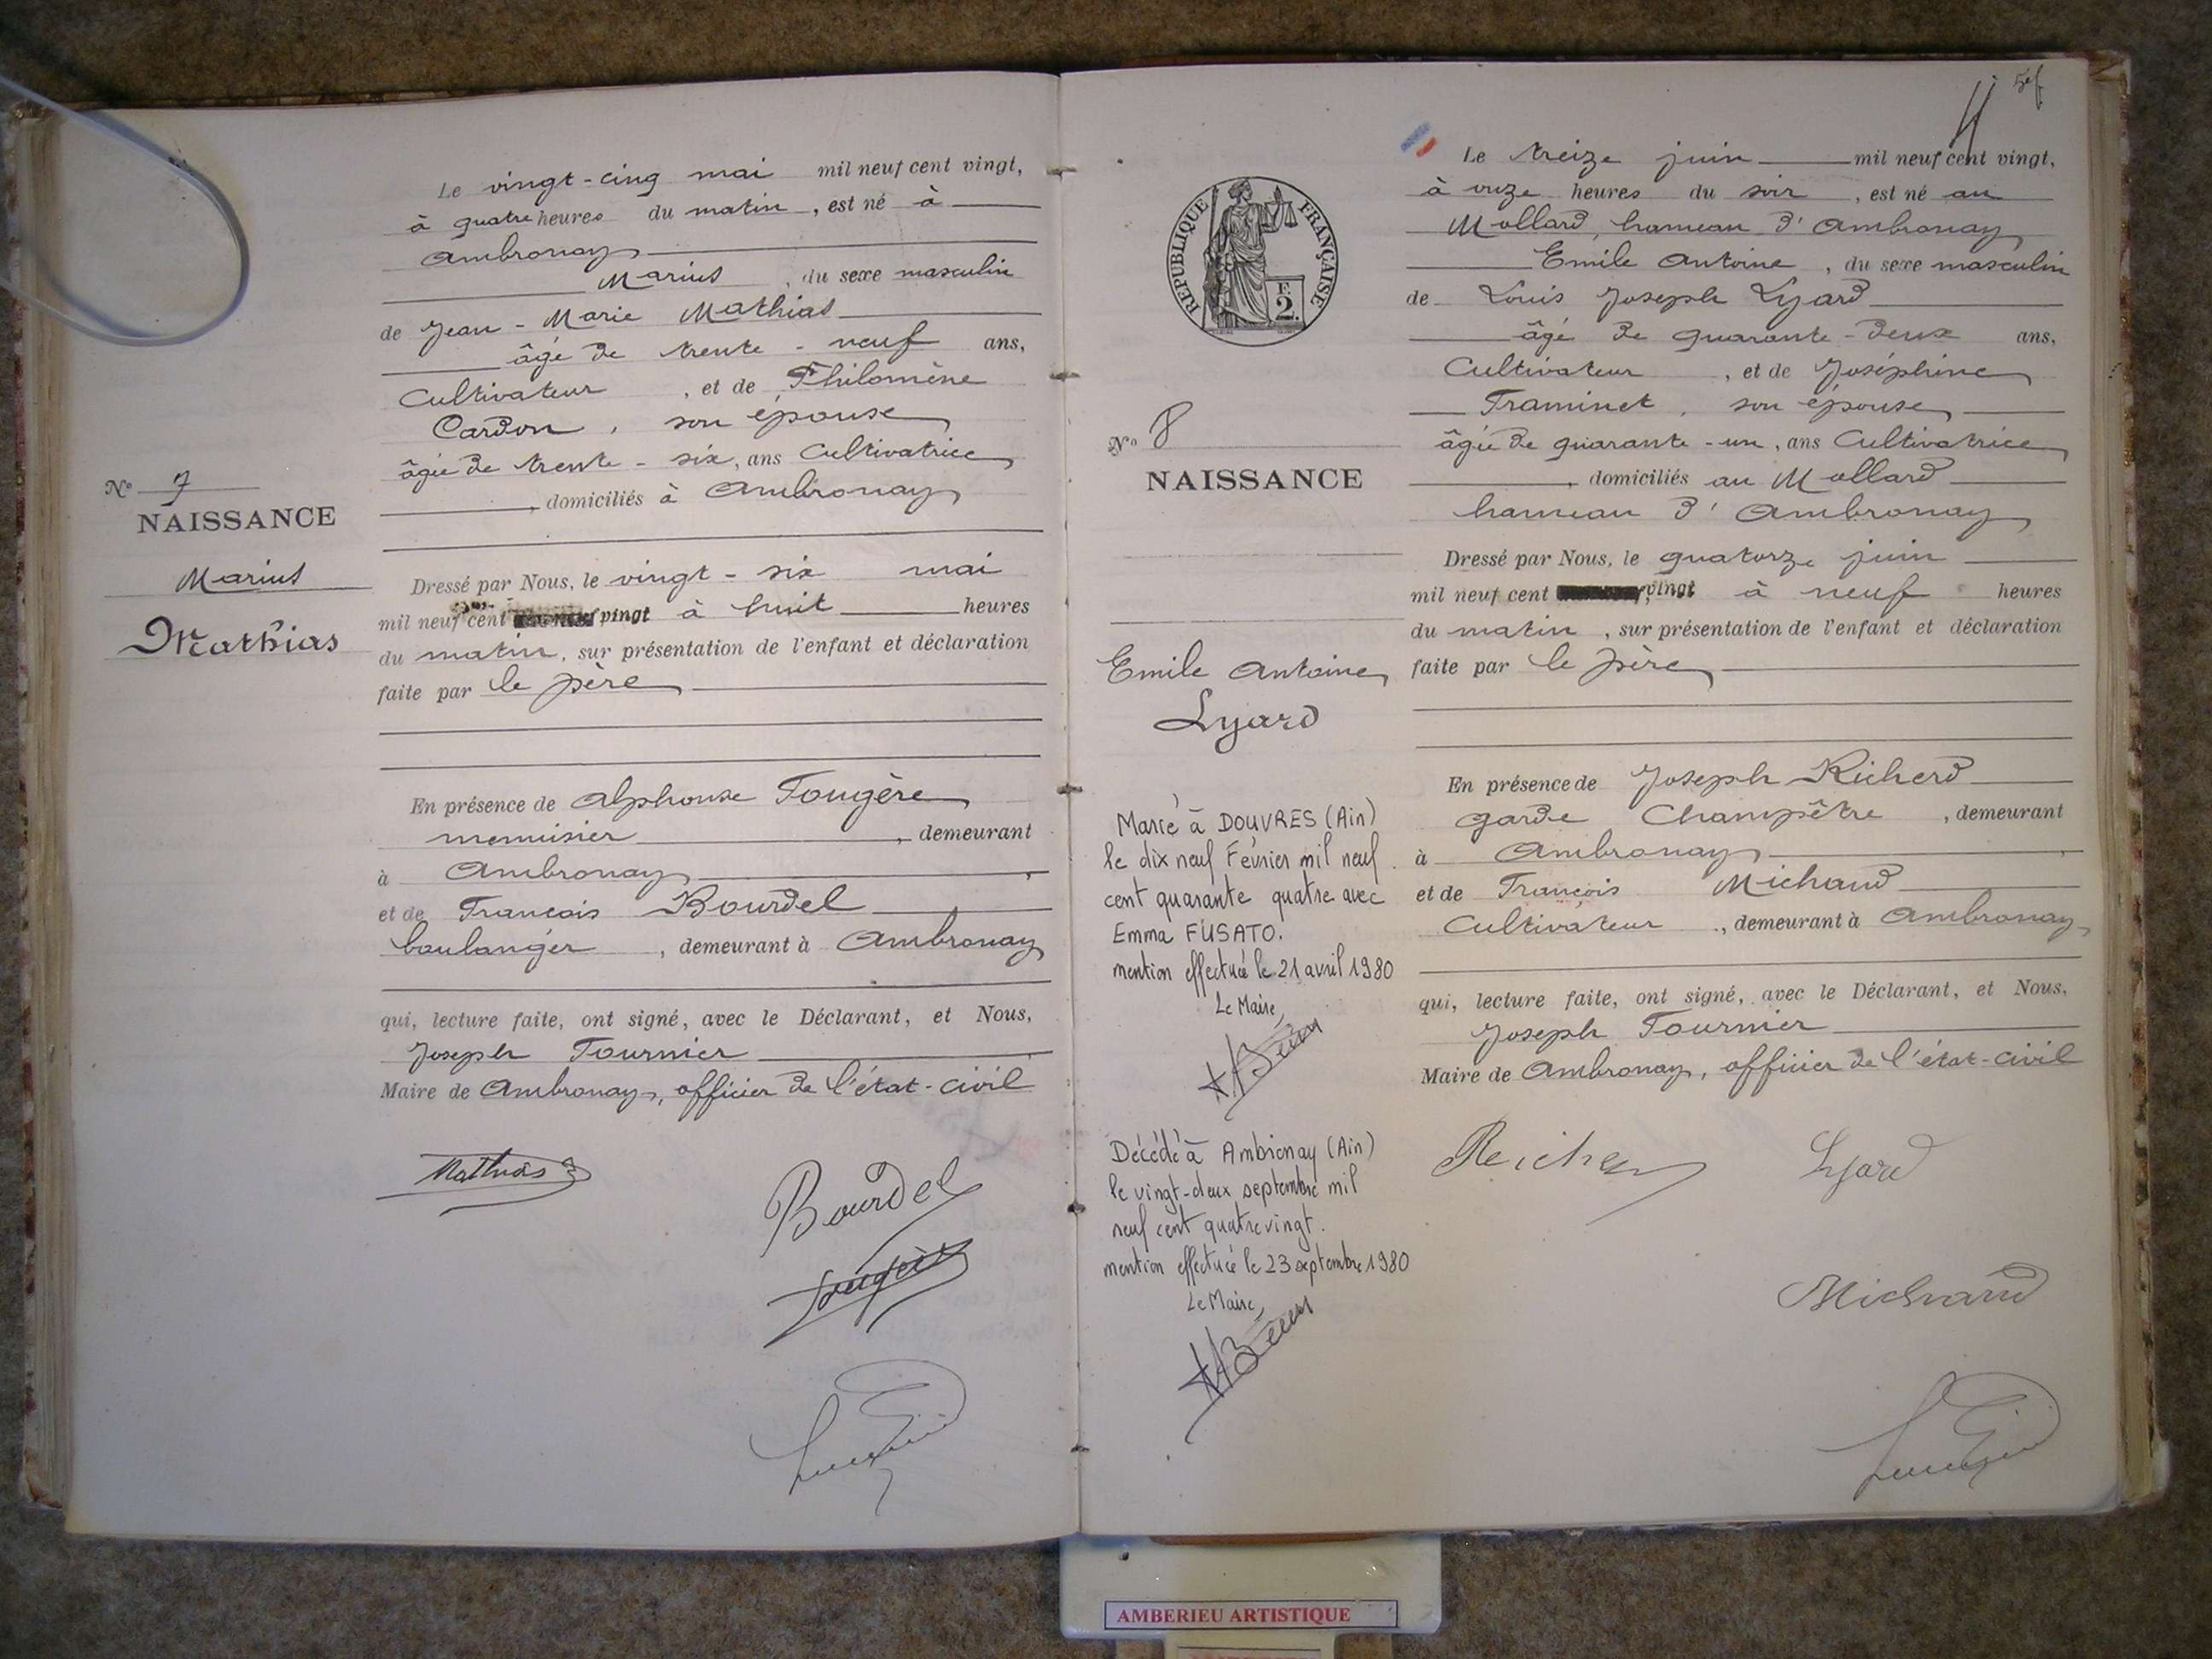 Nº 7
NAISSANCE
Marius
Mathias
Le vingt-cinq mai mil neuf cent vingt,
à quatre heures du matin, est né à
Ambronay
Marius, du sexe masculin
de Jean-Marie Mathias
âgé de trente-neuf ans,
Cultivateur, et de Philomène
Cardon, son épouse
âgée de trente-six, ans Cultivatrice
, domiciliés à Ambronay
Dressé par Nous, le vingt-six mai
mil neuf cent vingt à huit heures
du matin, sur présentation de l'enfant et déclaration
faite par le père
En présence de Alphonse Fougère
menuisier, demeurant
à Ambronay,
et de François Bourdel
boulanger, demeurant à Ambronay
qui, lecture faite, ont signé, avec le Déclarant, et Nous,
Joseph Tournier
Maire de Ambronay, officier de l'état-civil
Mathias
Bourdel
Fougère
4
RÉPUBLIQUE FRANÇAISE
F.
2.
Nº 8
NAISSANCE
Emile Antoine
Lyard
Marié à DOUVRES (Ain)
le dix neuf Février mil neuf
cent quarante quatre avec
Emma FUSATO.
mention effectuée le 21 avril 1980
Le Maire,
Décédé à Ambronay (Ain)
le vingt-deux septembre mil
neuf cent quatre vingt.
mention effectuée le 23 septembre 1980
Le Maire,
Le treize juin mil neuf cent vingt,
à onze heures du soir, est né au
Mollard, hameau d'Ambronay
Emile Antoine, du sexe masculin
de Louis Joseph Lyard
âgé de quarante-deux ans,
Cultivateur, et de Joséphine
Traminet, son épouse,
âgée de quarante-un, ans Cultivatrice
, domiciliés au Mollard
hameau d'Ambronay
Dressé par Nous, le quatorze juin
mil neuf cent vingt à neuf heures
du matin, sur présentation de l'enfant et déclaration
faite par le père
En présence de Joseph Richerd
garde Champêtre, demeurant
à Ambronay,
et de François Michaud
Cultivateur, demeurant à Ambronay
qui, lecture faite, ont signé, avec le Déclarant, et Nous,
Joseph Tournier
Maire de Ambronay, officier de l'état-civil
Lyard
Michaud
AMBERIEU ARTISTIQUE